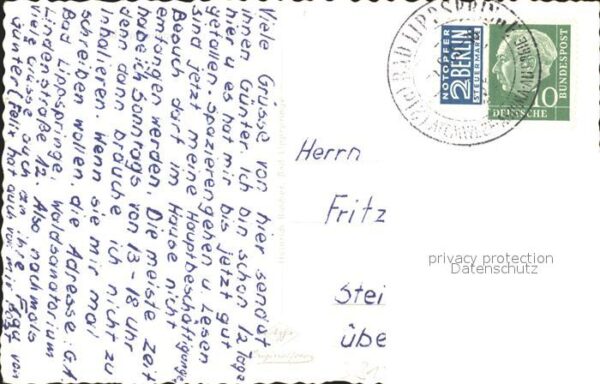 Viele Grüsse von hier sendet
ihnen Günter. Ich bin schon 12 Tage
hier u es hat mir bis jetzt gut
gefallen. Spazierengehen u Lesen
sind jetzt meine Hauptbeschäftigung
Besuch darf im Hause nicht
empfangen werden. Die meiste Zeit
Sonntags von 13-18 Uhr
denn dann brauche ich nicht zu
inhalieren. Wenn sie mir mal
schreiben wollen, die Adresse: G.A.
Bad Lippspringe, Waldsanatorium
Lindenstraße 12. Also nochmals
viele Grüsse auch an ihre Frau von
Günter
hat auch vor mir
Herrn
Fritz
Stei
übe
BAD LIPPSPRINGE
NOTOPFER
2 BERLIN
STEUERMARKE
10
DEUTSCHE
BUNDESPOST
privacy protection
Datenschutz